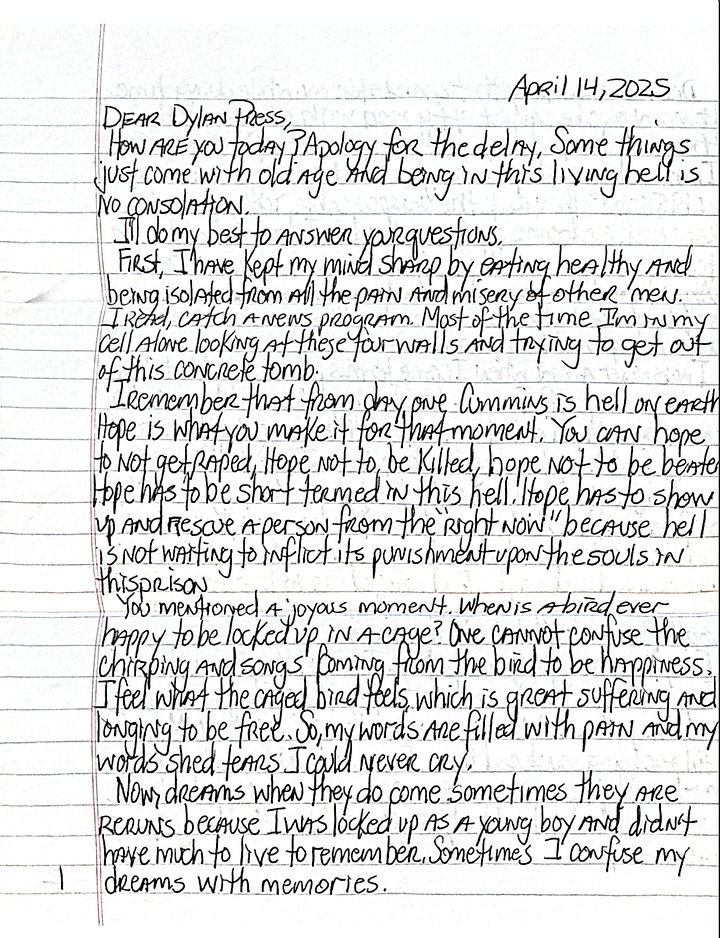 April 14, 2025
Dear Dylan Press,
How are you today? Apology for the delay, Some things
just come with old age and being in this living hell is
no consolation.
I'll do my best to answer your questions.
First, I have kept my mind sharp by eating healthy and
being isolated from all the pain and misery of other men.
I read, catch a news program. Most of the time I'm in my
cell alone looking at these four walls and trying to get out
of this concrete tomb.
I remember that from day one Cummins is hell on earth
Hope is what you make it for that moment. You can hope
to not get raped, Hope not to be killed, hope not to be beate
Hope has to be short termed in this hell. Hope has to show
up and rescue a person from the "right now" because hell
is not waiting to inflict its punishment upon the souls in
this prison
You mentioned a joyous moment. When is a bird ever
happy to be locked up in a cage? One cannot confuse the
chirping and songs coming from the bird to be happiness.
I feel what the caged bird feels, which is great suffering and
longing to be free. So, my words are filled with pain and my
words shed tears I could never cry.
Now, dreams when they do come sometimes they are
reruns because I was locked up as a young boy and didn't
have much to live to remember. Sometimes I confuse my
dreams with memories.
1